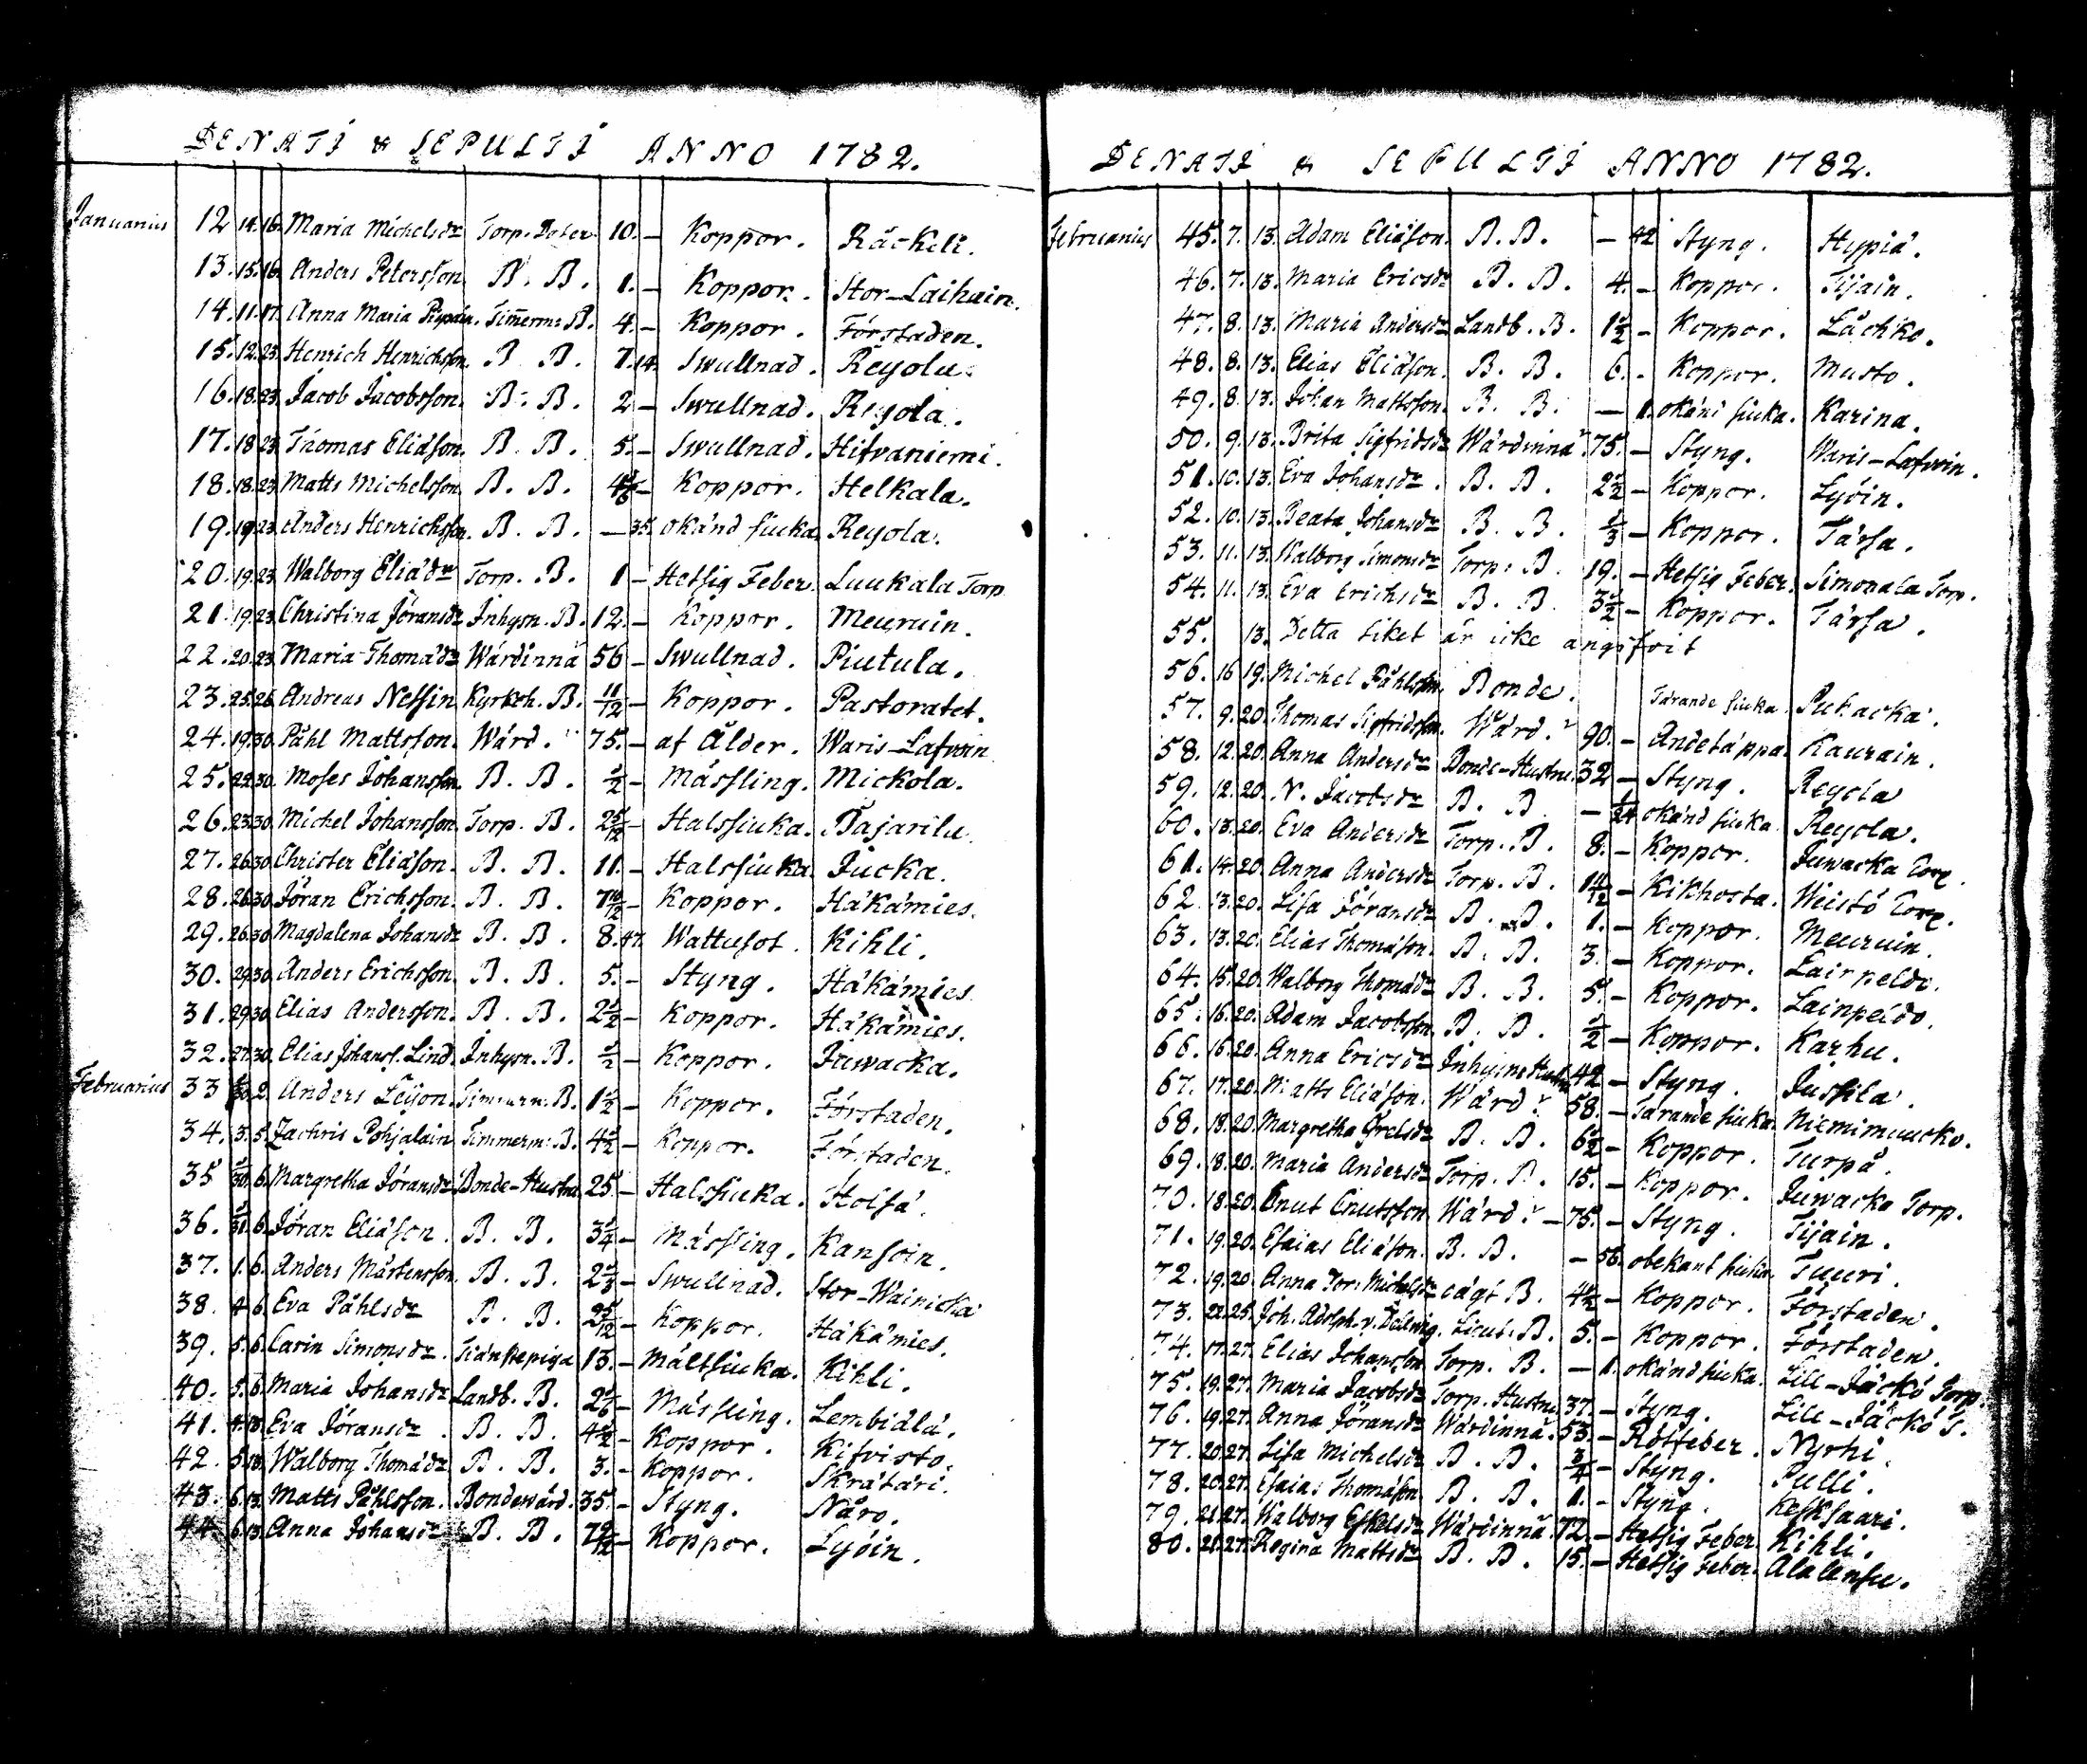 DENATI & SEPULTI ANNO 1782.
Januarius 12 14. 16. Maria Michelsdr Torp. Doter 10. – Koppor. Räckeli.
13. 15. 16. Anders Petersson B. B. 1. – Koppor. Stor-Laihain.
14. 11. 17. Anna Maria Timerm: B. 4. – Koppor. Förstaden.
15. 12. 23. Henrich Henrichsson. B. B. 7. 14. Swullnad. Reyola.
16. 18. 23. Jacob Jacobsson. B. B. 2 – Swullnad. Reyola.
17. 18 23. Thomas Eliäson. B. B. 5. – Swullnad. Hifvaniemi.
18. 18. 23. Matts Michelsson. B. B. – Koppor. Helkala.
19. 19. 23. Anders Henrichsson. B. B. – 35. okänd siuka. Reyola.
20. 19. 23. Walborg Eliädr Torp. B. 1 – Hetsig Feber. Luukala Torp
21. 19. 23. Christina Jöransdr Inhysn. B. 12. – Koppor. Meuruin.
22. 20. 23. Maria Thomädr Wärdinna 56 – Swullnad. Piutula.
23. 25. 26. Andreas Nessin Kyrkoh. B. 11/12 – Koppor. Pastoratet.
24. 19. 30. Påhl Mattsson. Wärd. 75. – af Ålder. Waris-Lafwoin
25. 22. 30. Moses Johansson. B. B. 1/2 – Mässling. Mickola.
26. 23. 30. Michel Johansson. Torp. B. 2 5/12 – Halssiuka. Bajarila.
27. 26. 30. Christer Eliäson. B. B. 11. – Halssiuka. Jucka.
28. 26. 30. Jöran Erichsson. B. B. 7 10/12 – Koppor. Häkämies.
29. 26. 30. Magdalena Johansdr B. B. 8. 47. Wattusot. Kihli.
30. 29. 30. Anders Erichsson. B. B. 5. – Styng. Häkämies.
31. 29. 30. Elias Andersson. B. B. 2 1/2 – Koppor. Häkämies.
32. 27. 30. Elias Johanss. Lind. Inhysn. B. 1/2 – Koppor. Juwacka.
Februarius 33 2. Anders Leijon. Timmerm. B. 1 1/2 – Koppor. Förstaden.
34. 3. 5. Zachris Pohjalain Timmerm: B. 4 1/2 – Koppor. Förstaden.
35 1/30. 6. Margretha Jöransdr Bonde-Hustru 25. – Halssiuka. Holsä.
36. 1/31. 6. Jöran Eliäson. B. B. 3/4 – Mässling. Kansoin.
37. 1. 6. Anders Mårtensson. B. B. 2 1/3 – Swullnad. Stor-Wainicka
38. 4 6. Eva Påhlsdr B. B. 2 5/12 – Koppor. Häkämies.
39. 5. 6. Carin Simonsdr. Tiänstepiga 13. – Mältsiuka. Kihli.
40. 5. 6. Maria Johansdr Landb. B. 2 1/6 – Mässling. Lembiälä.
41. 4. 13. Eva Jöransdr. B. B. 4 1/2 – Koppor. Kifvisto.
42. 5. 13. Walborg Thomädr B. B. 3. – Koppor. Skrätäri.
43. 6. 13. Matts Påhlsson. Bondewärd. 35. – Styng. Näro.
44. 6. 13. Anna Johansdr B. B. – Koppor. Lyöin.
DENATI & SEPULTI ANNO 1782.
Februarius 45. 7. 13. Adam Eliäson. B. B. – 42 Styng. Hyppiä.
46. 7. 13. Maria Ericsdr B. B. 4. – Koppor. Tijain.
47. 8. 13. Maria Andersdr Landb. B. 1 1/2 – Koppor. Lächkö.
48. 8. 13. Elias Eliäson. B. B. 6. – Koppor. Musto.
49. 8. 13. Johan Mattsson. B. B. – 1. okänd siuka. Karina.
50. 9. 13. Brita Sigfridsdr Wärdinna 75. – Styng. Waris-Lafwoin.
51. 10. 13. Eva Johansdr. B. B. 2 1/2 – Koppor. Lyöin.
52. 10. 13. Beata Johansdr B. B. 1/3 – Koppor. Tärsä.
53. 11. 13. Walborg Simonsdr Torp: B. 19. – Hetsig Feber. Simonala Torp.
54. 11. 13. Eva Erichsdr B. B. 3 1/2 – Koppor. Tärsä.
55. 13. Detta liket är icke angifvit
56. 16 19. Michel Påhlsson. Bonde. Tärande siuka. Puhacka.
57. 9. 20. Thomas Sigfridsson. Wärd. 90. – Andetäppa. Kaurain.
58. 12. 20. Anna Andersdr Bonde-Hustru 32 – Styng. Reyola
59. 12. 20. N. Jacobsdr B. B. – 1/24 okänd siuka. Reyola.
60. 13. 20. Eva Andersdr Torp. B. 8. – Koppor. Juwacka Torp.
61. 14. 20. Anna Andersdr Torp. B. – Kikhosta. Weistö Torp.
62. 13. 20. Lisa Jöransdr B. B. 1. – Koppor. Meuruin.
63. 13. 20. Elias Thomäson. B. B. 3. – Koppor. Lainpeldo.
64. 15. 20. Walborg Thomädr B. B. 5. – Koppor. Lainpeldo.
65. 16. 20. Adam Jacobsson. B. B. 1/2 – Koppor. Karhu.
66. 16. 20. Anna Ericsdr Inhysnes Hustru 42 – Styng. Jussila.
67. 17. 20. Matts Eliäson. Wärd. 58. – Tärande siuka. Niemimuucko.
68. 18. 20. Margretha B. B. 6 1/2 – Koppor. Turpä.
69. 18. 20. Maria Andersdr Torp. B. 15. – Koppor. Juwacka Torp.
70. 18. 20. Cnut Cnutsson. Wärd. – 75. – Styng. Tijain.
71. 19. 20. Esaias Eliäson. B. B. – 56 obekant siuka. Tuuri.
72. 19. 20. Anna Dor: Michelsdr oägt B. 4 1/2 – Koppor. Förstaden.
73. 22. 25. Joh. Adolph. v. Lieut: B. 5. – Koppor. Förstaden.
74. 17. 27. Elias Johansson. Torp. B. – 1. okänd siuka. Lill-Jäckö Torp.
75. 19. 27. Maria Jacobsdr Torp. Hustru 37. – Styng. Lill-Jäckö T.
76. 19. 27. Anna Jöransdr Wärdinna. 53. – Rötfeber. Nyrhi.
77. 20. 27. Lisa Michelsdr B. B. 3/4 – Styng. Pulli.
78. 20. 27. Esaias Thomäson. B. B. 1. – Styng. Kesksaari.
79. 21. 27. Walborg Eskelsdr Wärdinna. 72. – Hetsig Feber. Kihli.
80. 21. 27. Regina Mattsdr B. B. 15. – Hetsig Feber. Alalensu.